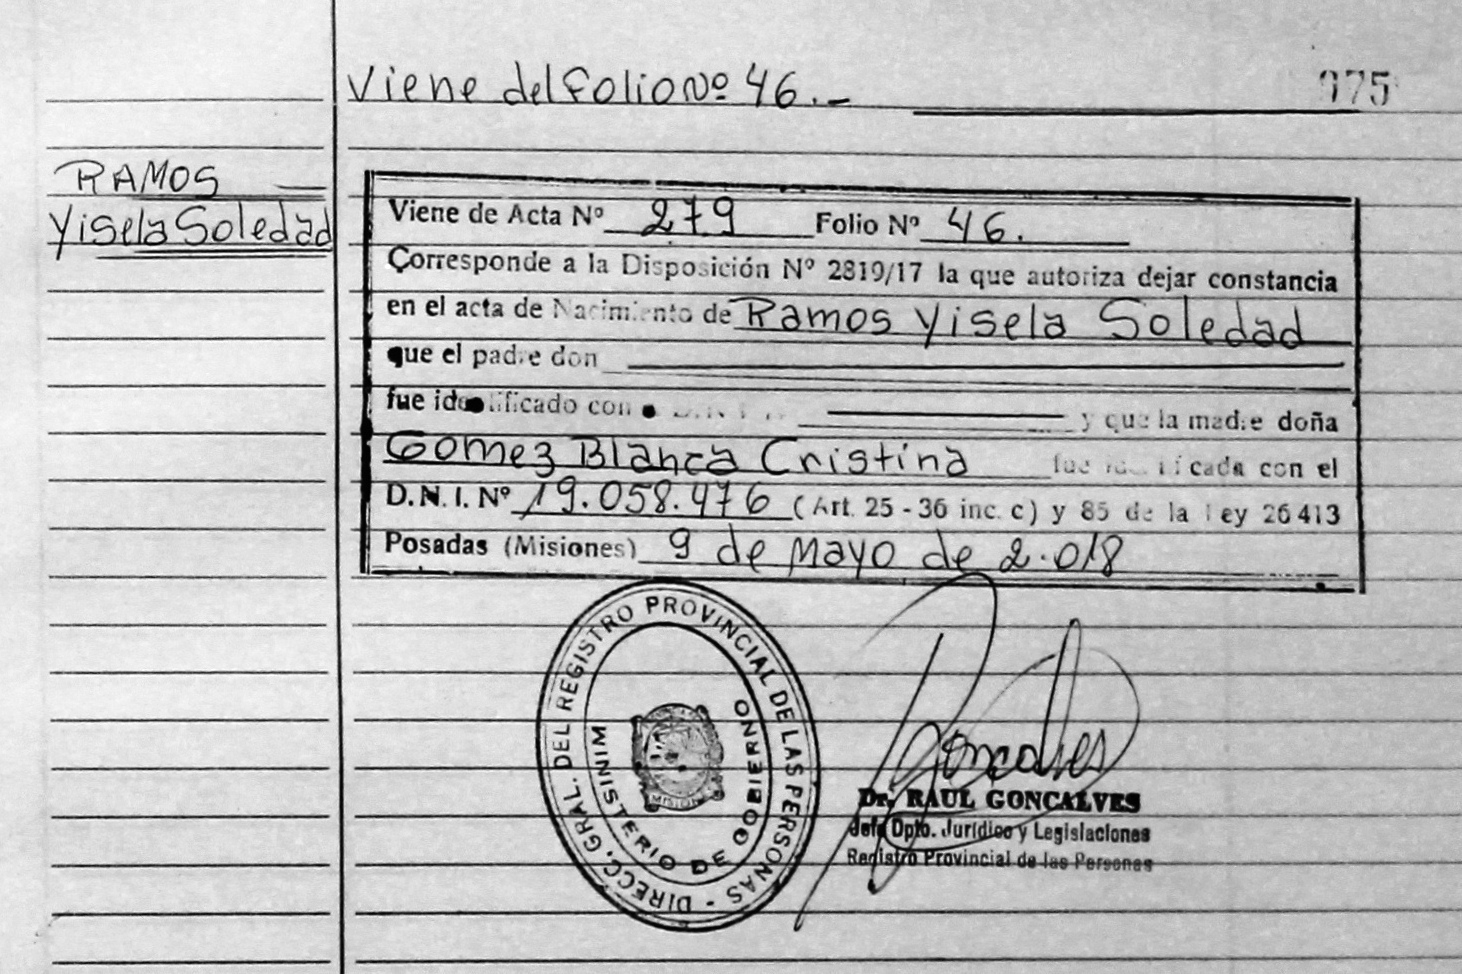 Viene del Folio Nº 46.-
375
RAMOS
Yisela Soledad
Viene de Acta Nº 279 Folio Nº 46.
Corresponde a la Disposición Nº 2819/17 la que autoriza dejar constancia
en el acta de Nacimiento de Ramos Yisela Soledad
que el padre don
fue identificado con D.N.I. Nº y que la madre doña
Gomez Blanca Cristina fue identificada con el
D.N.I. Nº 19.058.476 (Art. 25 - 36 inc. c) y 85 de la Ley 26413
Posadas (Misiones) 9 de Mayo de 2.018
DIRECC. GRAL. DEL REGISTRO PROVINCIAL DE LAS PERSONAS -
MINISTERIO DE GOBIERNO
MISIONES
Goncalves
Dr. RAUL GONCALVES
Jefe Dpto. Jurídico y Legislaciones
Registro Provincial de las Personas